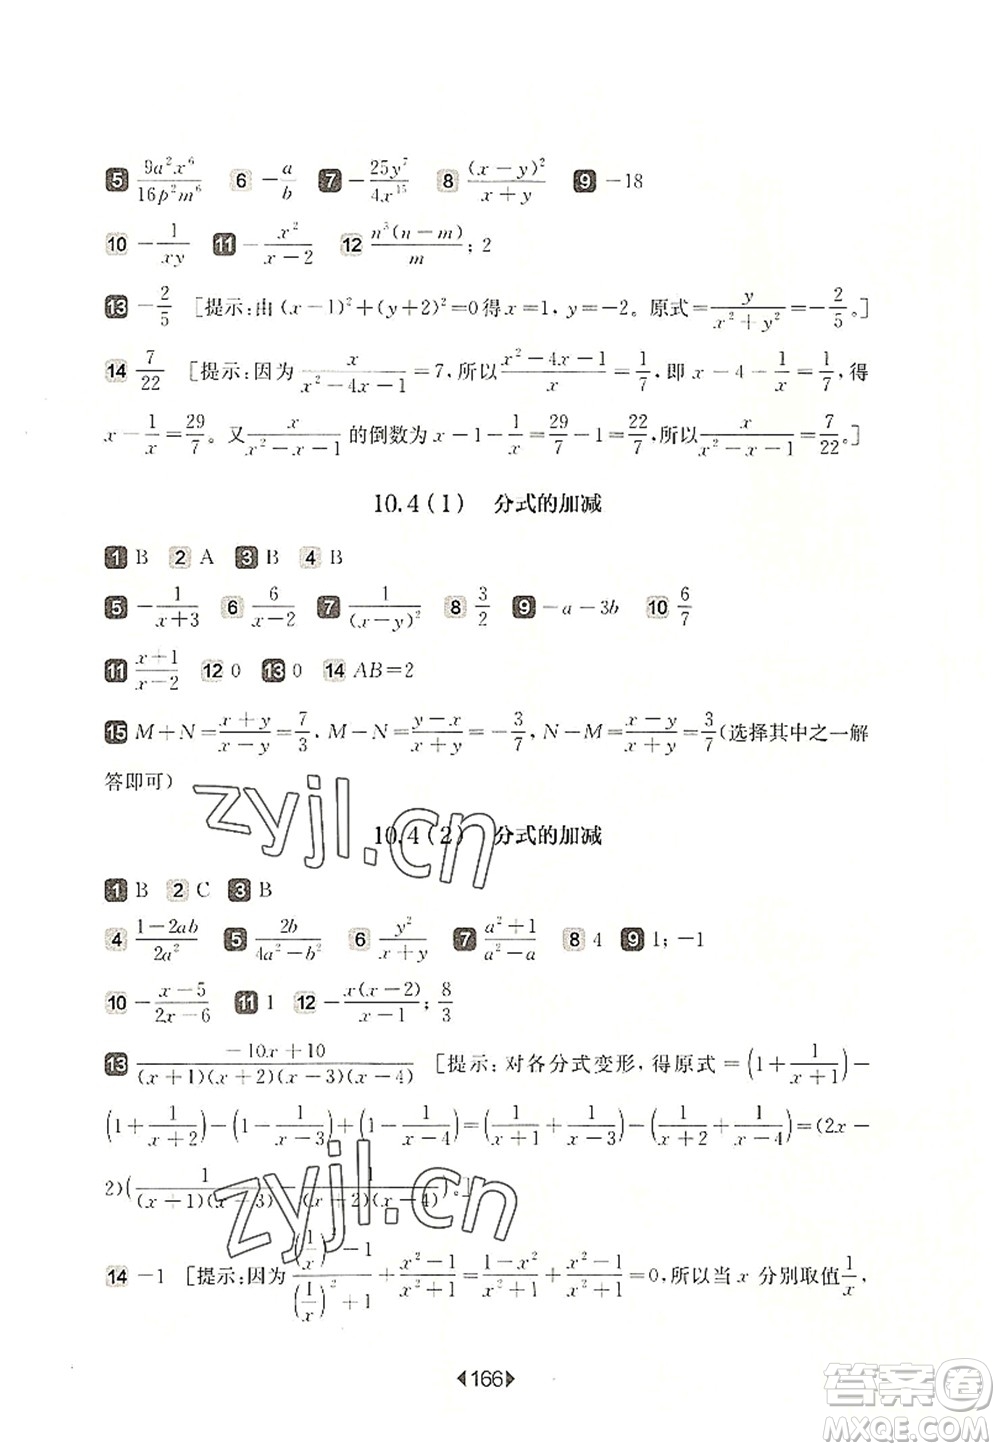 5 9a²x⁶/16p²m⁶ 6 −a/b 7 −25y⁷/4x¹⁵ 8 (x−y)²/x+y 9 −18
10 −1/xy 11 −x²/x−2 12 n³(n−m)/m; 2
13 −2/5 [提示:由(x−1)²+(y+2)²=0得x=1, y=−2。原式=y/x²+y²=−2/5。]
14 7/22 [提示:因为x/x²−4x−1=7,所以x²−4x−1/x=1/7,即x−4−1/x=1/7,得
x−1/x=29/7。又x/x²−x−1的倒数为x−1−1/x=29/7−1=22/7,所以x/x²−x−1=7/22。]
10.4(1) 分式的加减
1 B 2 A 3 B 4 B
5 −1/x+3 6 6/x−2 7 1/(x−y)² 8 3/2 9 −a−3b 10 6/7
11 x+1/x−2 12 0 13 0 14 AB=2
15 M+N=x+y/x−y=7/3, M−N=y−x/x+y=−3/7, N−M=x−y/x+y=3/7(选择其中之一解
答即可)
10.4(2) 分式的加减
1 B 2 C 3 B
4 1−2ab/2a² 5 2b/4a²−b² 6 y²/x+y 7 a²+1/a²−a 8 4 9 1; −1
10 −x−5/2x−6 11 1 12 −x(x−2)/x−1; 8/3
13 −10x+10/(x+1)(x+2)(x−3)(x−4) [提示:对各分式变形,得原式=(1+1/x+1)−
(1+1/x+2)−(1−1/x−3)+(1−1/x−4)=(1/x+1+1/x−3)−(1/x+2+1/x−4)=(2x−
2)(1/(x+1)(x−3)−1/(x+2)(x−4))。]
14 −1 [提示:因为(1/x)²−1/(1/x)²+1+x²−1/x²+1=1−x²/1+x²+x²−1/x²+1=0,所以当x分别取值1/x,
166
zyjl.cn
zyjl.cn
答案圈
MXQE.COM